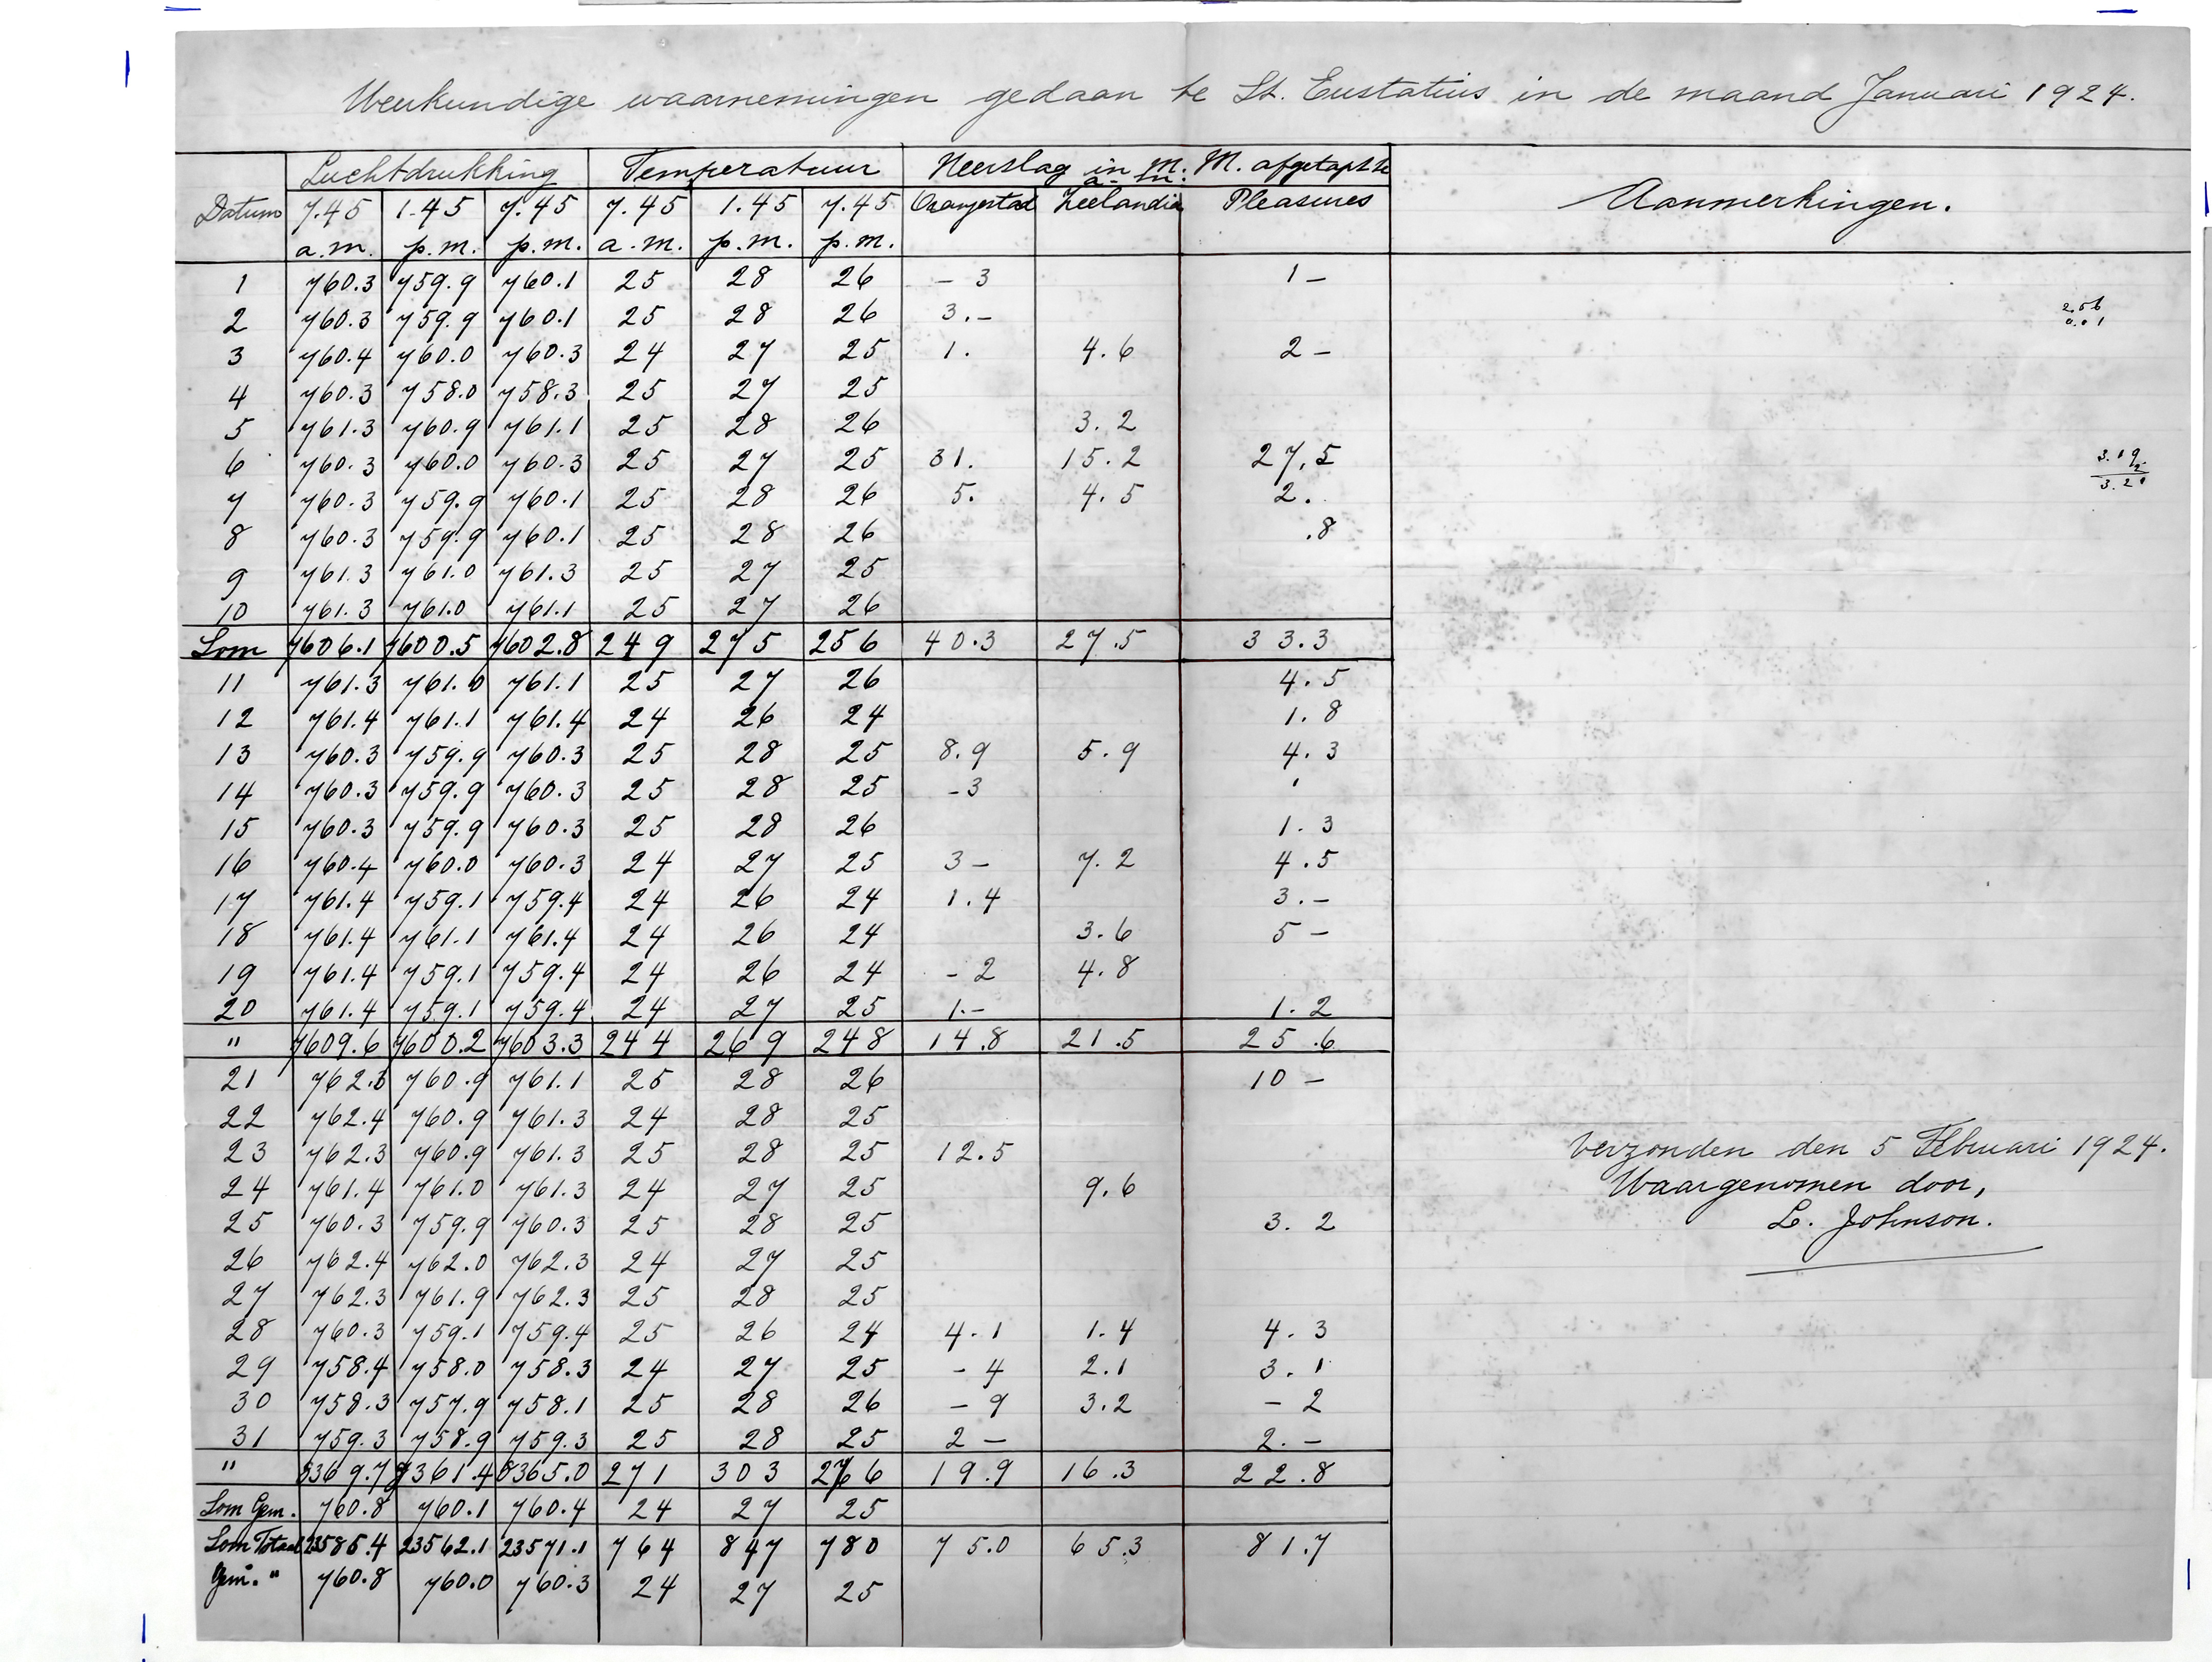 Weerkundige waarnemingen gedaan te St. Eustatius in de maand Januari 1924.
Datum Luchtdrukking Temperatuur Neerslag in m. M. afgetapt te Aanmerkingen.
7.45 1.45 7.45 7.45 1.45 7.45 Oranjestad Zeelandia Pleasures
a.m. p.m. p.m. a.m. p.m. p.m.
1 760.3 759.9 760.1 25 28 26 - 3 1 -
2 760.3 759.9 760.1 25 28 26 3.- 2.56
0.01
3 760.4 760.0 760.3 24 27 25 1. 4.6 2 -
4 760.3 758.0 758.3 25 27 25
5 761.3 760.9 761.1 25 28 26 3.2
6 760.3 760.0 760.3 25 27 25 31. 15.2 27,5 3.19
2
3.21
7 760.3 759.9 760.1 25 28 26 5. 4.5 2.
8 760.3 759.9 760.1 25 28 26 .8
9 761.3 761.0 761.3 25 27 25
10 761.3 761.0 761.1 25 27 26
Som 7606.1 7600.5 7602.8 249 275 256 40.3 27.5 33.3
11 761.3 761.0 761.1 25 27 26 4.5
12 761.4 761.1 761.4 24 26 24 1.8
13 760.3 759.9 760.3 25 28 25 8.9 5.9 4.3
14 760.3 759.9 760.3 25 28 25 -3
15 760.3 759.9 760.3 25 28 26 1.3
16 760.4 760.0 760.3 24 27 25 3- 7.2 4.5
17 761.4 759.1 759.4 24 26 24 1.4 3.-
18 761.4 761.1 761.4 24 26 24 3.6 5 -
19 761.4 759.1 759.4 24 26 24 - 2 4.8
20 761.4 759.1 759.4 24 27 25 1.- 1.2
" 7609.6 7600.2 7603.3 244 269 248 14.8 21.5 25.6
21 762.3 760.9 761.1 25 28 26 10 -
22 762.4 760.9 761.3 24 28 25
23 762.3 760.9 761.3 25 28 25 12.5
24 761.4 761.0 761.3 24 27 25 9.6
25 760.3 759.9 760.3 25 28 25 3.2
26 762.4 762.0 762.3 24 27 25
27 762.3 761.9 762.3 25 28 25
28 760.3 759.1 759.4 25 26 24 4.1 1.4 4.3
29 758.4 758.0 758.3 24 27 25 - 4 2.1 3.1
30 758.3 757.9 758.1 25 28 26 - 9 3.2 - 2
31 759.3 758.9 759.3 25 28 25 2 - 2.-
" 8369.7 8361.4 8365.0 271 303 276 19.9 16.3 22.8
Som Gem. 760.8 760.1 760.4 24 27 25
Som Totaal 23585.4 23562.1 23571.1 764 847 780 75.0 65.3 81.7
Gem. " 760.8 760.0 760.3 24 27 25
Verzonden den 5 Februari 1924.
Waargenomen door,
L. Johnson.